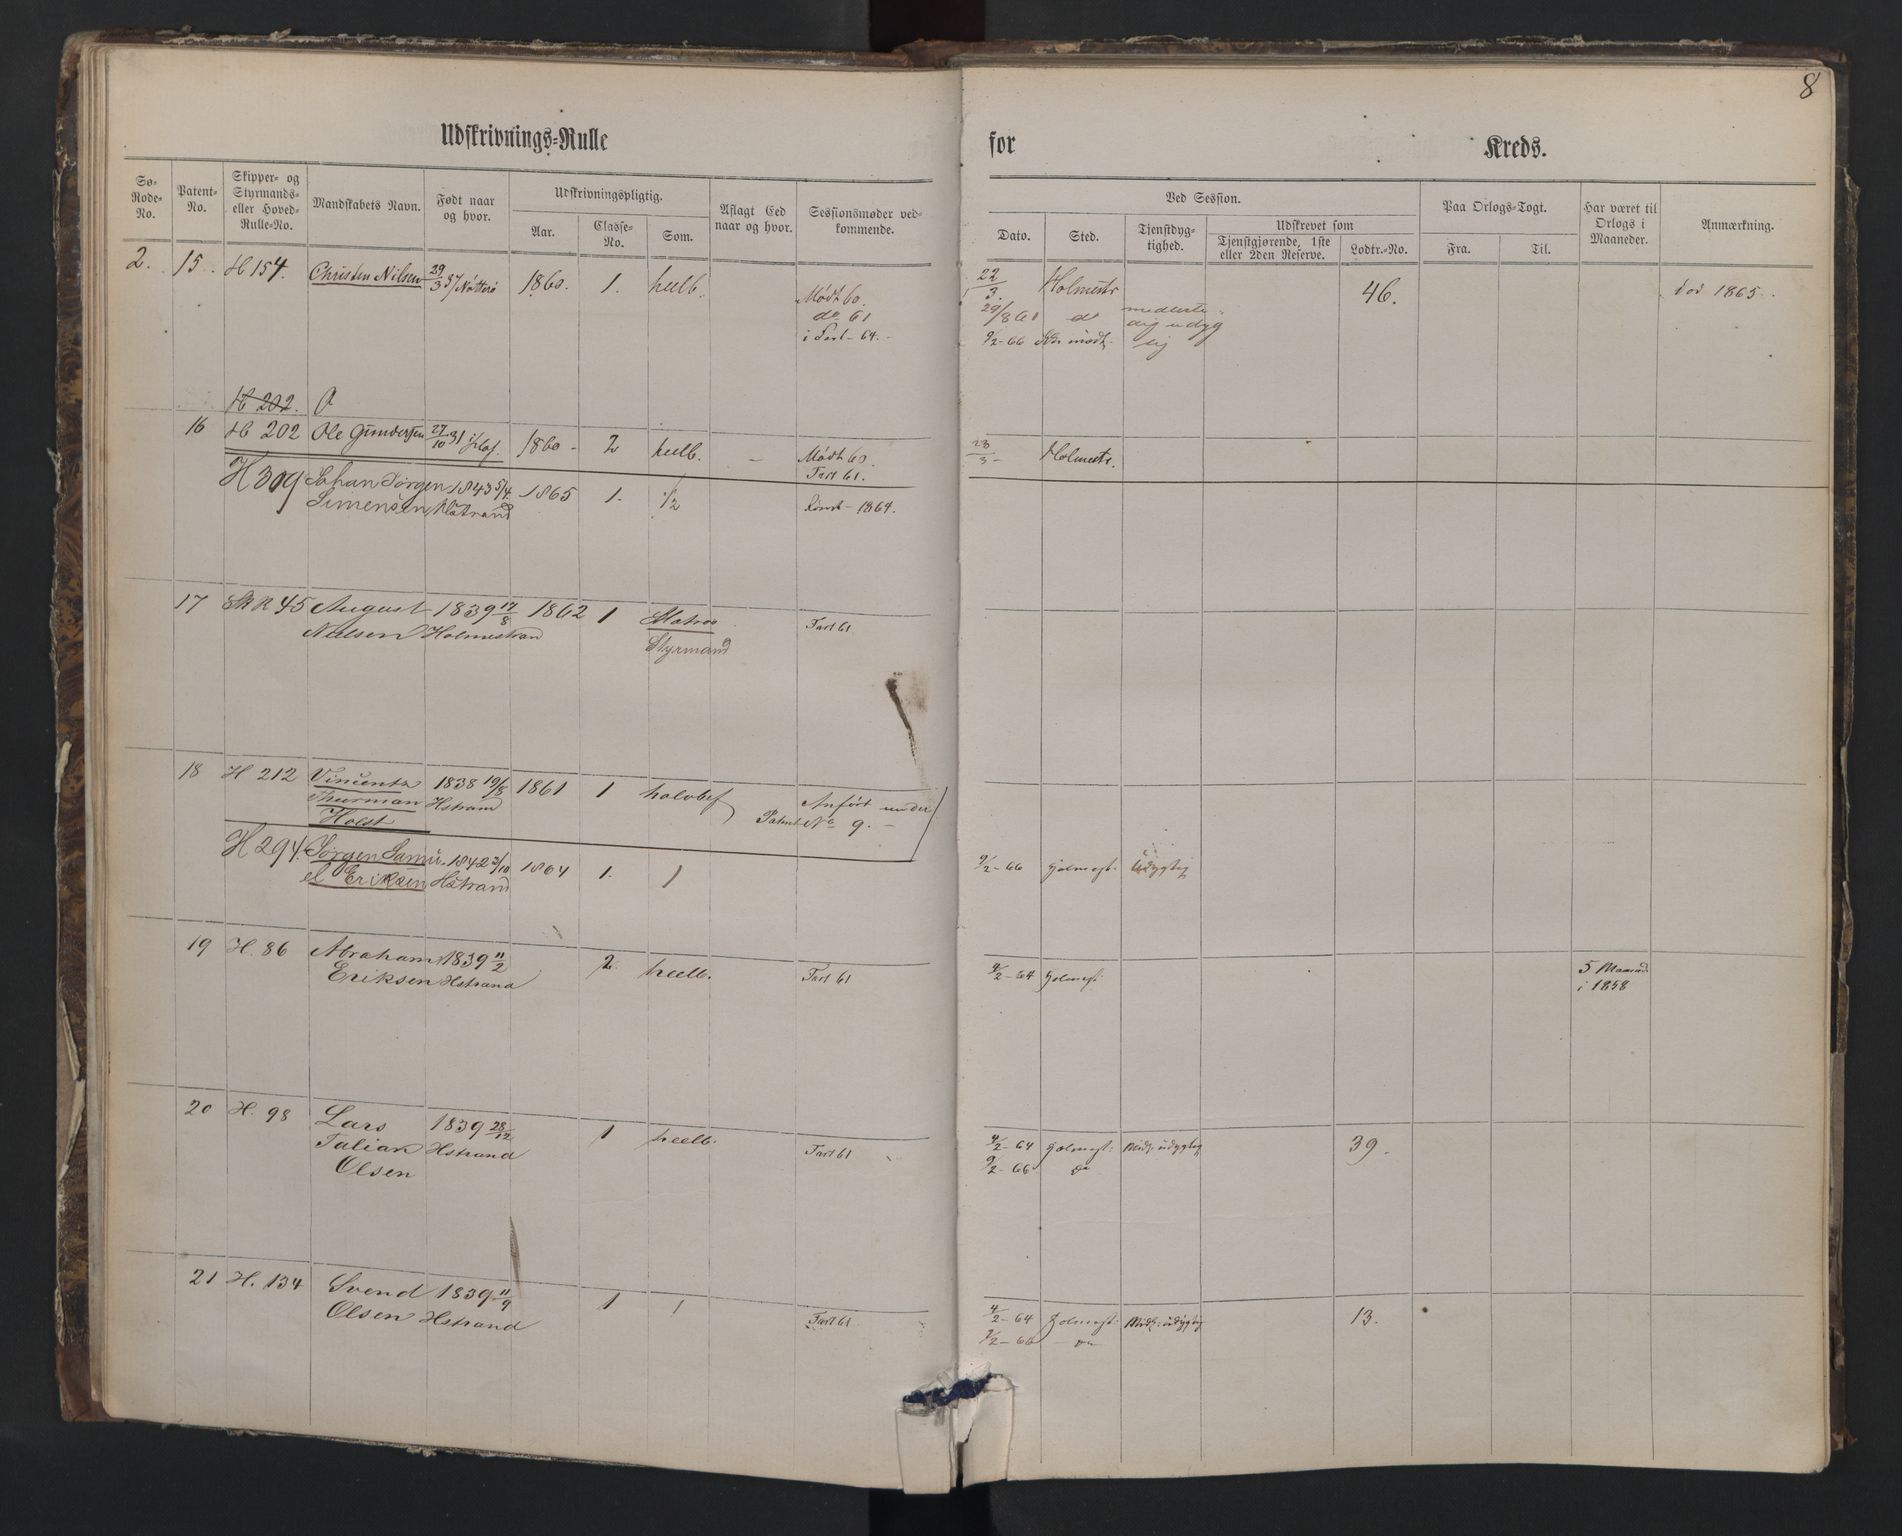 8
Udskrivnings-Rulle for Kreds.
Sø-Rode-No. Patent-No. Skipper- og Styrmands- eller Hoved-Rulle-No. Mandskabets Navn. Født naar og hvor. Udskrivningspligtig. Aflagt Eed naar og hvor. Sessionsmøder vedkommende.
Aar. Classe-No. Som.
Ved Session. Paa Orlogs-Togt. Har været til Orlogs i Maaneder. Anmærkning.
Dato. Sted. Tjenstdygtighed. Udskrevet som
Tjenstgjørende, 1ste eller 2den Reserve. Lodtr.-No. Fra. Til.
2. 15. H 154. Christen Nilsen 29/3 37 Nötterö 1860. 1. heelb. 22/3. Holmestr 46. död 1865.
Mødt 60.
do 61 29/8 61 do
i Fart 64. 9/2-66 mödt
H 202.
16 H 202 Ole Gundersen 27/10 31 1860 2 heelb. - Mødt 60. 23/3 Holmestr.
Fart 61.
H 309 Johan Jörgen 1843 5/4 1865 1. 1/2
Simensen Hstrand 1864.
17 45 August 1839 17/8 1862 1 Matros
Nielsen Holmestrand Fart 61
Styrmand
18 H 212 Vincents 1838 19/8 1861 1 halvbef Anført under
Thurman Hstrand Patent No 9.
Holst
H 294. Jörgen Samu- 1842 3/10 1864 1. 1 9/2-66 Holmest: Udygtig
el Eriksen Hstrand
19 H. 86 Abraham 1839 11/2 2. heelb. Fart 61 4/2-64 Holmest: 5 Maaned.
Eriksen Hstrand i 1858
20 H. 98 Lars 1839 28/12 1 heelb. Fart 61 4/2-64 Holmest: Midl. udygtig 39.
Taliak Hstrand 9/2-66 Do
Olsen
21 H. 134 Svend 1839 11/9 1 1 Fart 61 4/2-64 Holmest: Midl: udygtig 13.
Olsen Hstrand 9/2-66 Do